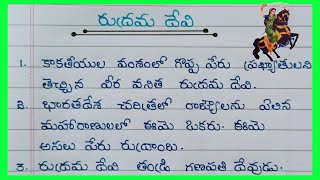 రుద్రమ దేవి
1. కాకతీయుల వంశంలో గొప్ప పేరు ప్రఖ్యాతులని
తెచ్చిన వీర వనిత రుద్రమ దేవి.
2. భారతదేశ చరిత్రలో రాజ్యాలను ఏలిన
మహారాణులలో ఈమె ఒకరు. ఈమె
అసలు పేరు రుద్రాంబ.
3. రుద్రమ దేవి తండ్రి గణపతి దేవుడు.